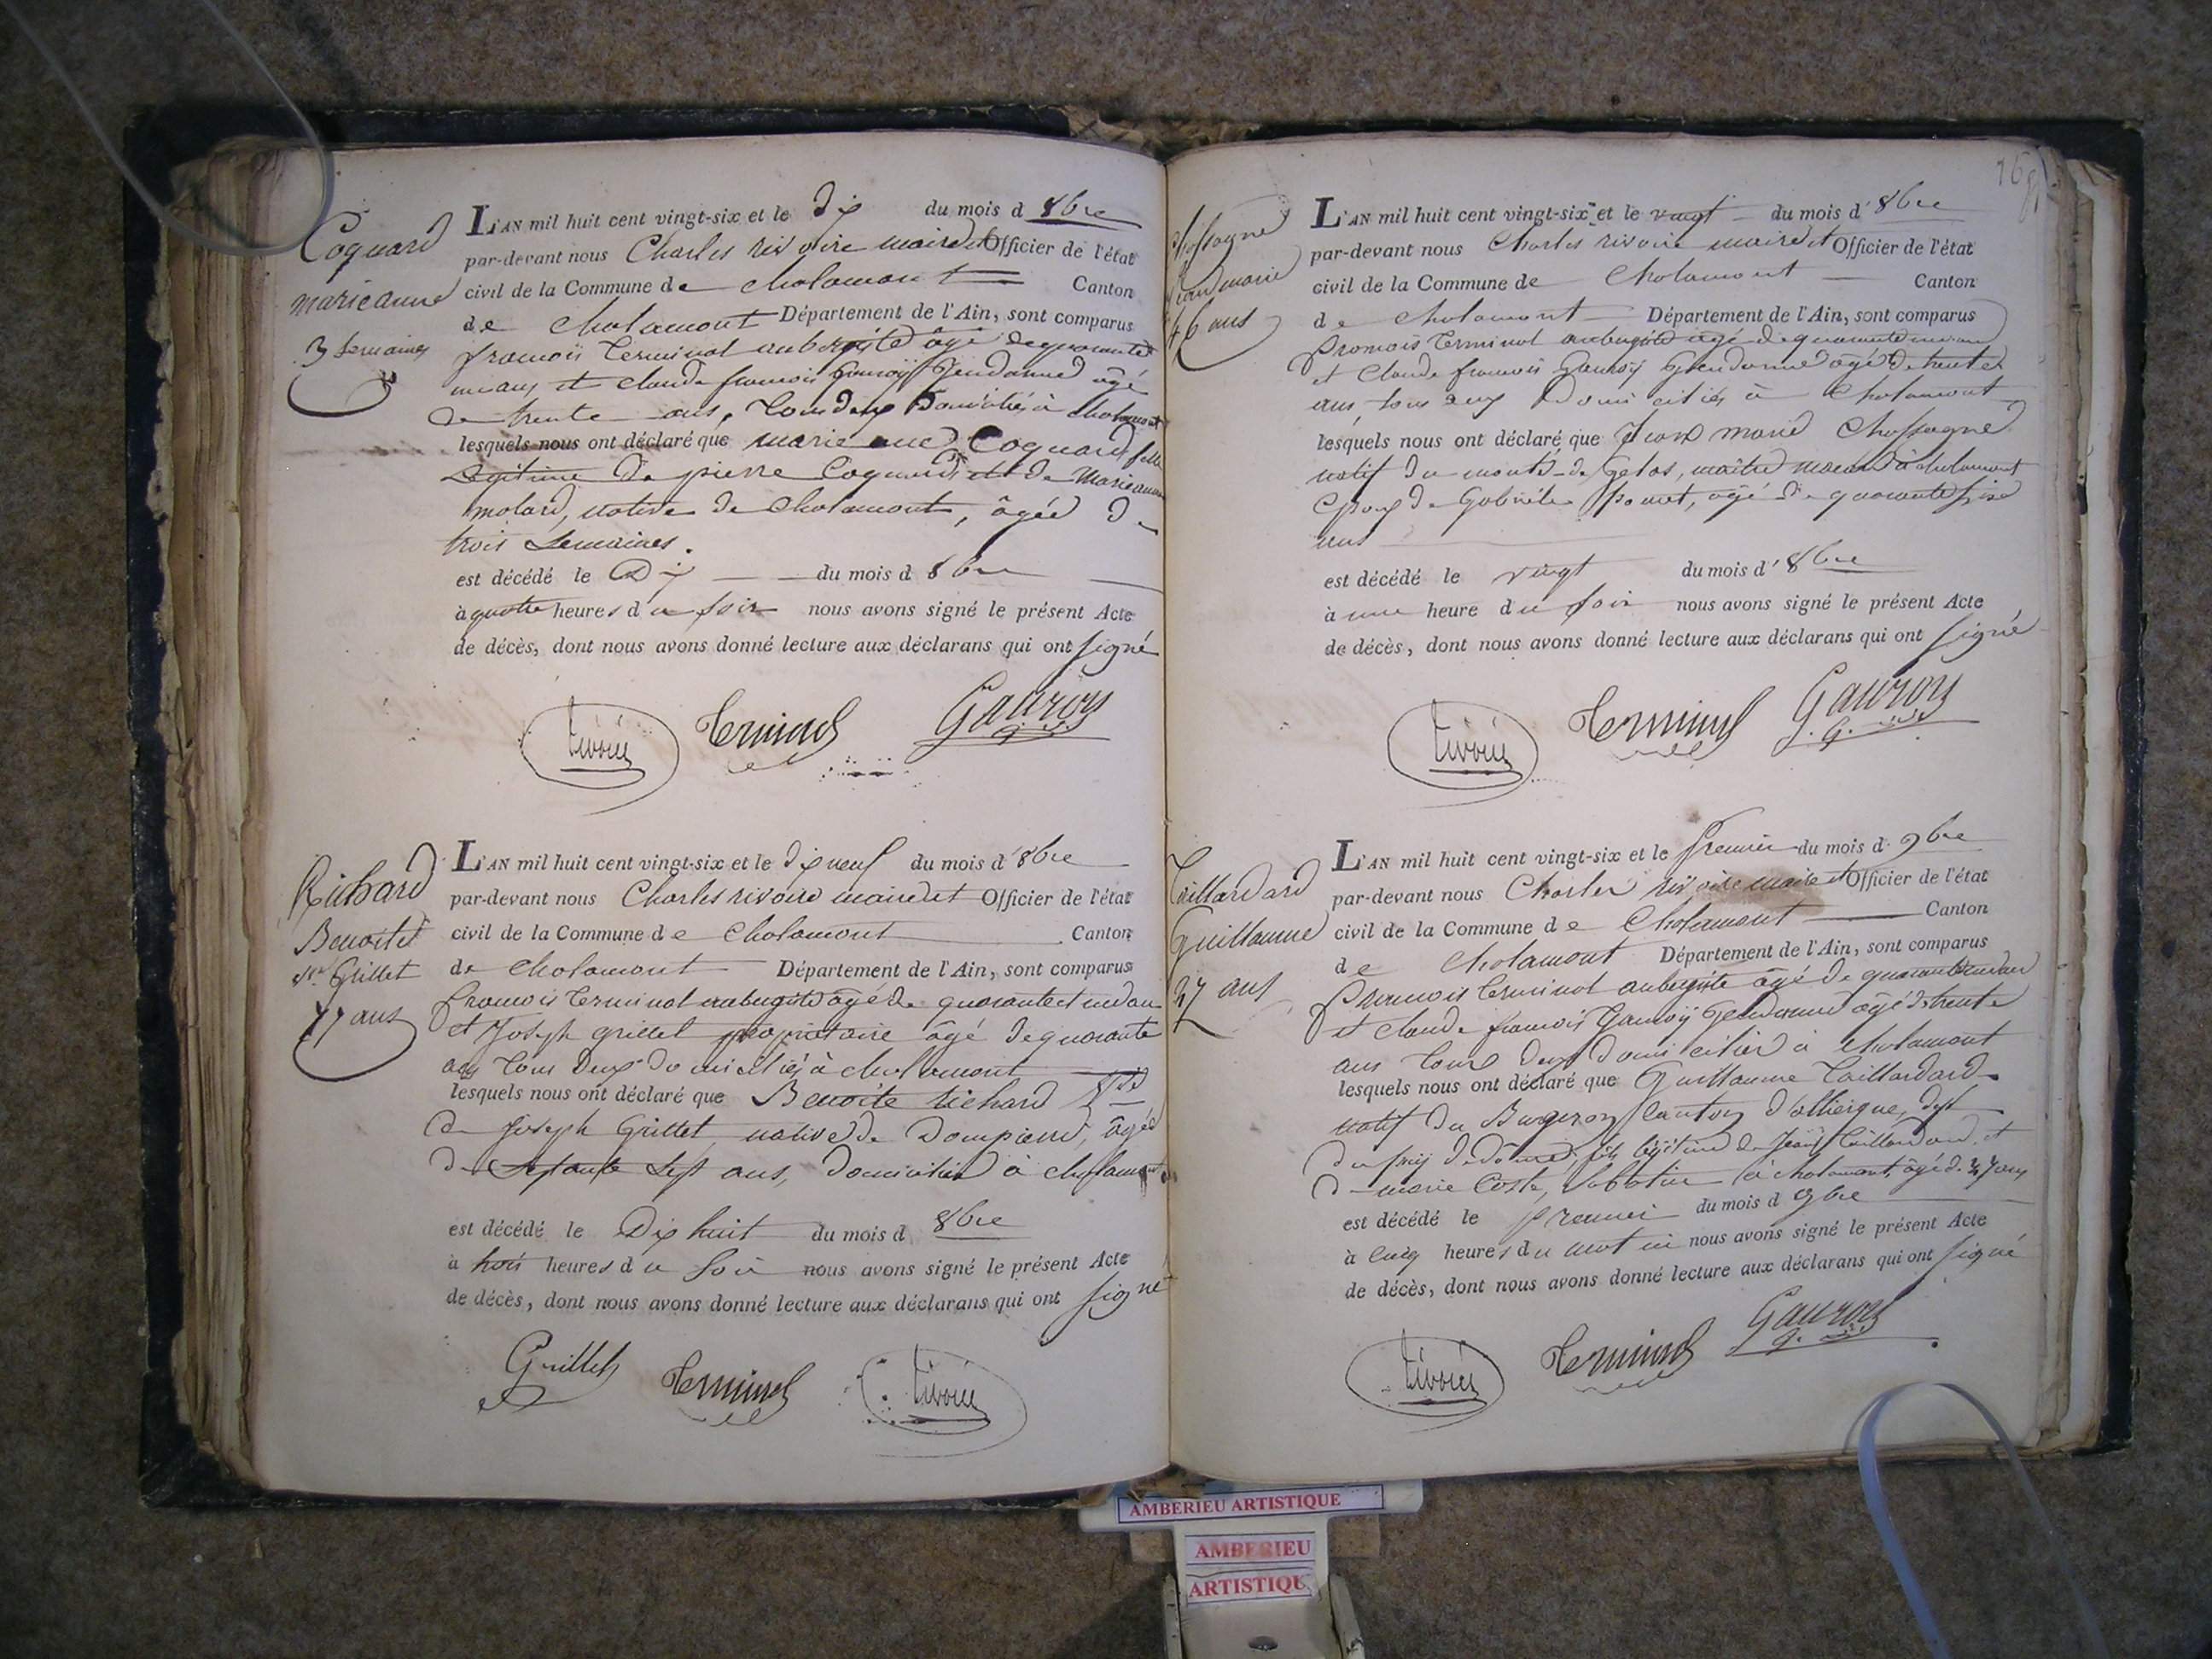 Coquard
marie anne
3 semaines
L'AN mil huit cent vingt-six et le Dix du mois d 8bre
par-devant nous Charles rivoire maire et Officier de l'état
civil de la Commune de cholamont Canton
de cholamont Département de l'Ain, sont comparus
francois Terminal aubergiste âgé de quarante
un ans et claude francois Gauroy Gendarme âgé
de trente ans, tous deux Domiciliés à cholamont
lesquels nous ont déclaré que marie anne Coquard fille
Légitime De pierre Coquard et de Marie anne
molard, native de cholamont, âgée De
trois semaines.
est décédé le Dix du mois d 8bre
à quatre heures du soir nous avons signé le présent Acte
de décès, dont nous avons donné lecture aux déclarans qui ont signé
rivoire Terminal Gauroy
Richard
Benoite
ve Grillet
77 ans
L'AN mil huit cent vingt-six et le dix neuf du mois d' 8bre
par-devant nous Charles rivoire maire et Officier de l'état
civil de la Commune de cholamont Canton
de cholamont Département de l'Ain, sont comparus
francois Terminal aubergiste âgé de quarante et un an
et Joseph Grillet propriétaire âgé de quarante
ans tous Deux Domiciliés à cholamont
lesquels nous ont déclaré que Benoite richard
De Joseph Grillet native De Dompierre, âgée
De septante sept ans, Domiciliée à cholamont
est décédé le Dix huit du mois d 8bre
à trois heures du soir nous avons signé le présent Acte
de décès, dont nous avons donné lecture aux déclarans qui ont signé
Grillet Terminal rivoire
Chassagne
Jean marie
46 ans
L'AN mil huit cent vingt-six et le vingt du mois d' 8bre
par-devant nous Charles rivoire maire et Officier de l'état
civil de la Commune de Cholamont Canton
de cholamont Département de l'Ain, sont comparus
francois Terminal aubergiste âgé de quarante un ans
et Claude francois Gauroy Gendarme âgé de trente
ans, tous deux Domiciliés à Cholamont
lesquels nous ont déclaré que Jean marie Chassagne
natif du de Gelas, maître macon à cholamont
Epoux de Gabrielle âgé de quarante six
ans
est décédé le vingt du mois d' 8bre
à une heure du soir nous avons signé le présent Acte
de décès, dont nous avons donné lecture aux déclarans qui ont signé
rivoire Terminal Gauroy
Taillardard
Guillaume
37 ans
L'AN mil huit cent vingt-six et le premier du mois d 9bre
par-devant nous Charles rivoire maire et Officier de l'état
civil de la Commune de Cholamont Canton
de cholamont Département de l'Ain, sont comparus
francois Terminal aubergiste âgé de quarante un an
et claude francois Gauroy Gendarme âgé de trente
ans tous deux Domiciliés à cholamont
lesquels nous ont déclaré que Guillaume Taillardard
natif du canton d'ollierque, dept
du puy de dome, fils légitime de Jean Taillardard et
De marie Coste, sabotier à cholamont, âgé de 37 ans
est décédé le premier du mois d 9bre
à cinq heures du matin nous avons signé le présent Acte
de décès, dont nous avons donné lecture aux déclarans qui ont signé
rivoire Terminal Gauroy
AMBERIEU ARTISTIQUE
AMBERIEU
ARTISTIQU